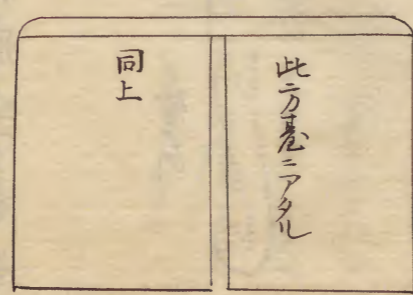 此二方基ニアタル
同上